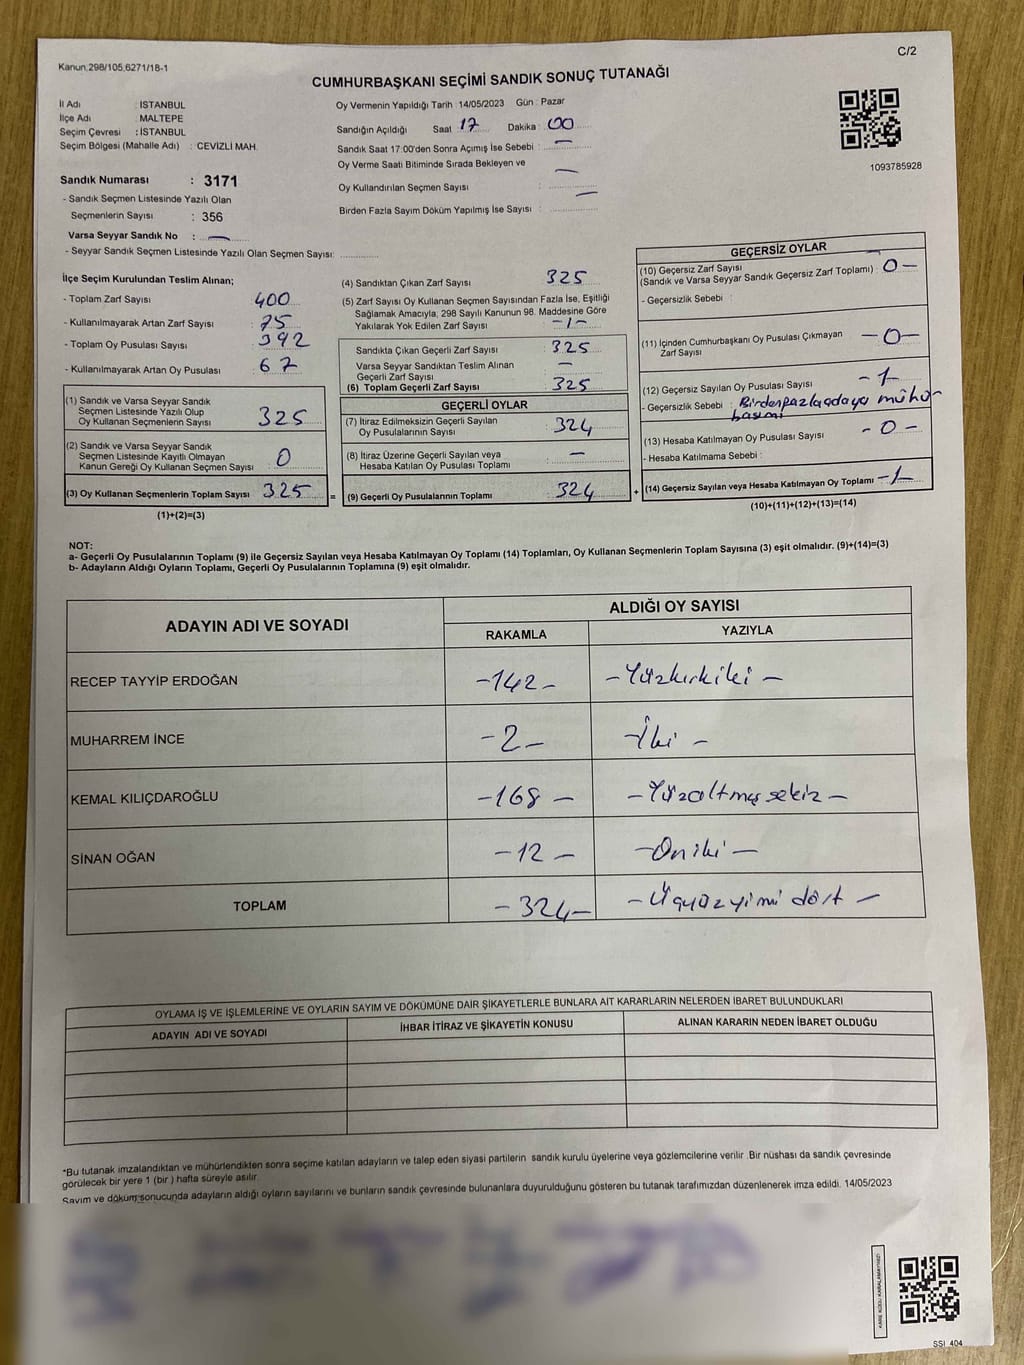 C/2
Kanun.298/105.6271/18-1
CUMHURBAŞKANI SEÇİMİ SANDIK SONUÇ TUTANAĞI
İl Adı : İSTANBUL
İlçe Adı : MALTEPE
Seçim Çevresi : İSTANBUL
Seçim Bölgesi (Mahalle Adı) : CEVİZLİ MAH.
Sandık Numarası : 3171
- Sandık Seçmen Listesinde Yazılı Olan
Seçmenlerin Sayısı : 356
Varsa Seyyar Sandık No : —
- Seyyar Sandık Seçmen Listesinde Yazılı Olan Seçmen Sayısı:
Oy Vermenin Yapıldığı Tarih : 14/05/2023 Gün : Pazar
Sandığın Açıldığı Saat 17 Dakika 00
Sandık Saat 17:00'den Sonra Açımış İse Sebebi : —
Oy Verme Saati Bitiminde Sırada Bekleyen ve —
Oy Kullandırılan Seçmen Sayısı : —
Birden Fazla Sayım Döküm Yapılmış İse Sayısı :
1093785928
İlçe Seçim Kurulundan Teslim Alınan;
- Toplam Zarf Sayısı : 400
- Kullanılmayarak Artan Zarf Sayısı : 75
- Toplam Oy Pusulası Sayısı : 392
- Kullanılmayarak Artan Oy Pusulası : 67
(1) Sandık ve Varsa Seyyar Sandık
Seçmen Listesinde Yazılı Olup
Oy Kullanan Seçmenlerin Sayısı : 325
(2) Sandık ve Varsa Seyyar Sandık
Seçmen Listesinde Kayıtlı Olmayan
Kanun Gereği Oy Kullanan Seçmen Sayısı : 0
(3) Oy Kullanan Seçmenlerin Toplam Sayısı 325 =
(1)+(2)=(3)
(4) Sandıktan Çıkan Zarf Sayısı : 325
(5) Zarf Sayısı Oy Kullanan Seçmen Sayısından Fazla İse, Eşitliği
Sağlamak Amacıyla, 298 Sayılı Kanunun 98. Maddesine Göre
Yakılarak Yok Edilen Zarf Sayısı : -1-
Sandıkta Çıkan Geçerli Zarf Sayısı : 325
Varsa Seyyar Sandıktan Teslim Alınan
Geçerli Zarf Sayısı : —
(6) Toplam Geçerli Zarf Sayısı : 325
GEÇERLİ OYLAR
(7) İtiraz Edilmeksizin Geçerli Sayılan
Oy Pusulalarının Sayısı : 324
(8) İtiraz Üzerine Geçerli Sayılan veya
Hesaba Katılan Oy Pusulası Toplamı : —
(9) Geçerli Oy Pusulalarının Toplamı : 324 +
GEÇERSİZ OYLAR
(10) Geçersiz Zarf Sayısı
(Sandık ve Varsa Seyyar Sandık Geçersiz Zarf Toplamı) : -0-
- Geçersizlik Sebebi :
(11) İçinden Cumhurbaşkanı Oy Pusulası Çıkmayan
Zarf Sayısı : -0-
(12) Geçersiz Sayılan Oy Pusulası Sayısı : -1-
- Geçersizlik Sebebi : Birden fazla adaya mühür
basımı
(13) Hesaba Katılmayan Oy Pusulası Sayısı : -0-
- Hesaba Katılmama Sebebi :
(14) Geçersiz Sayılan veya Hesaba Katılmayan Oy Toplamı -1-
(10)+(11)+(12)+(13)=(14)
NOT:
a- Geçerli Oy Pusulalarının Toplamı (9) ile Geçersiz Sayılan veya Hesaba Katılmayan Oy Toplamı (14) Toplamları, Oy Kullanan Seçmenlerin Toplam Sayısına (3) eşit olmalıdır. (9)+(14)=(3)
b- Adayların Aldığı Oyların Toplamı, Geçerli Oy Pusulalarının Toplamına (9) eşit olmalıdır.
ADAYIN ADI VE SOYADI
ALDIĞI OY SAYISI
RAKAMLA YAZIYLA
RECEP TAYYİP ERDOĞAN -142- -Yüzkırkiki-
MUHARREM İNCE -2- -İki-
KEMAL KILIÇDAROĞLU -168- -Yüzaltmış sekiz-
SİNAN OĞAN -12- -Oniki-
TOPLAM -324- -Üçyüzyirmi dört-
OYLAMA İŞ VE İŞLEMLERİNE VE OYLARIN SAYIM VE DÖKÜMÜNE DAİR ŞİKAYETLERLE BUNLARA AİT KARARLARIN NELERDEN İBARET BULUNDUKLARI
ADAYIN ADI VE SOYADI İHBAR İTİRAZ VE ŞİKAYETİN KONUSU ALINAN KARARIN NEDEN İBARET OLDUĞU
*Bu tutanak imzalandıktan ve mühürlendikten sonra seçime katılan adayların ve talep eden siyasi partilerin sandık kurulu üyelerine veya gözlemcilerine verilir .Bir nüshası da sandık çevresinde
görülecek bir yere 1 (bir ) hafta süreyle asılır.
Sayım ve döküm sonucunda adayların aldığı oyların sayılarını ve bunların sandık çevresinde bulunanlara duyurulduğunu gösteren bu tutanak tarafımızdan düzenlenerek imza edildi. 14/05/2023
KARE KODU KARALAMAYINIZ!
SSİ_404